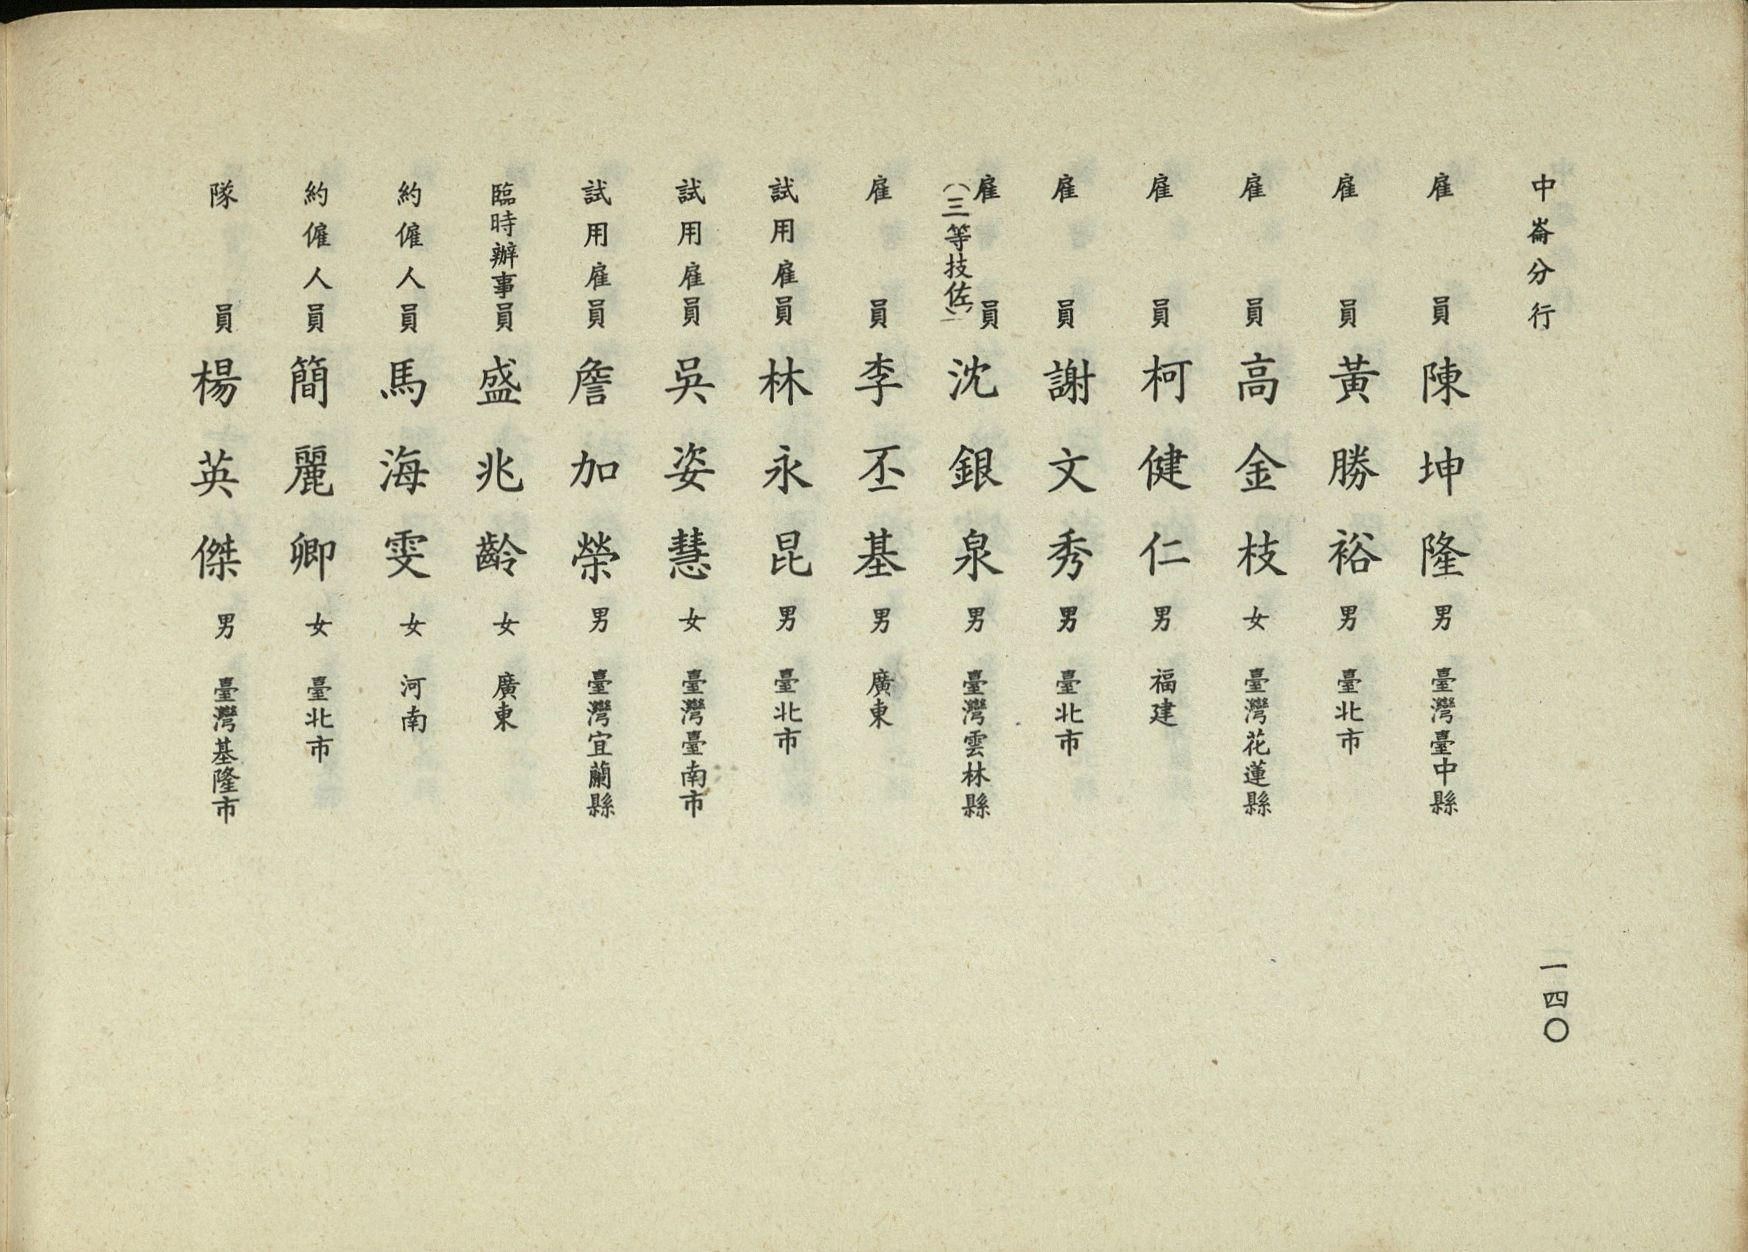 中崙分行
一四〇
雇員 陳坤隆 男 臺灣臺中縣
雇員 黃勝裕 男 臺北市
雇員 高金枝 女 臺灣花蓮縣
雇員 柯健仁 男 福建
雇員 謝文秀 男 臺北市
雇員 沈銀泉 男 臺灣雲林縣
（三等技佐）
雇員 李丕基 男 廣東
試用雇員 林永昆 男 臺北市
試用雇員 吳姿慧 女 臺灣臺南市
試用雇員 詹加榮 男 臺灣宜蘭縣
臨時辦事員 盛兆齡 女 廣東
約僱人員 馬海雯 女 河南
約僱人員 簡麗卿 女 臺北市
隊員 楊英傑 男 臺灣基隆市